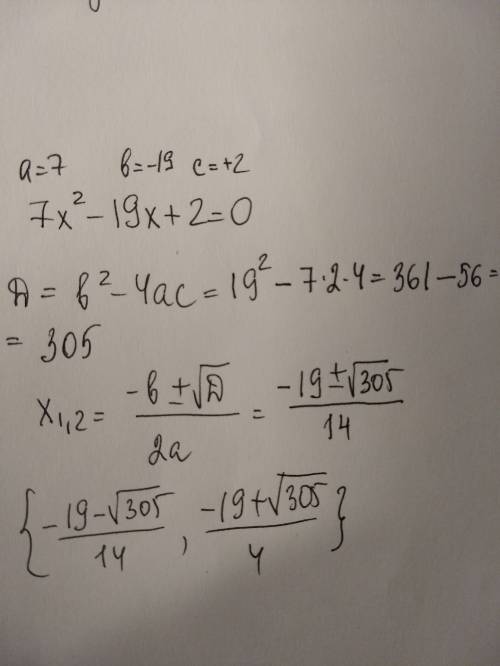 a=7 b=-19 c=+2
7x² - 19x + 2 = 0
D = b² - 4ac = 19² - 7·2·4 = 361 - 56 =
= 305
x₁,₂ = (-b ± √D) / 2a = (-19 ± √305) / 14
{ (-19 - √305) / 14 , (-19 + √305) / 4 }